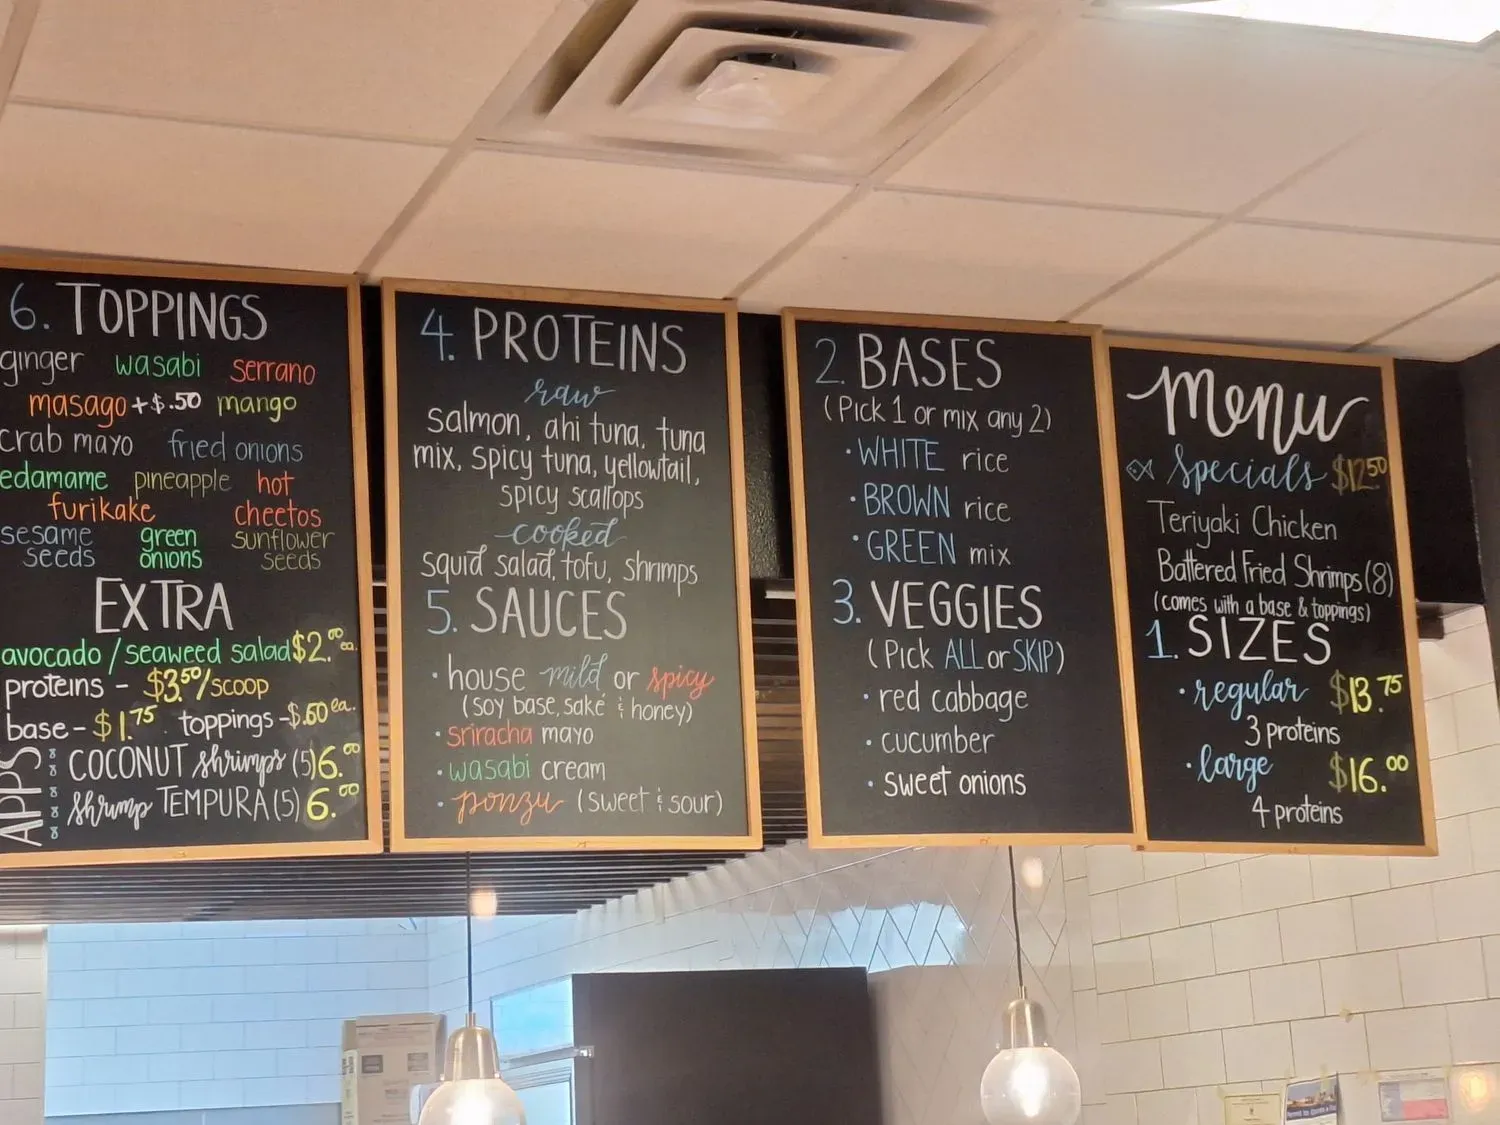 6. TOPPINGS
ginger wasabi serrano
masago +$.50 mango
crab mayo fried onions
edamame pineapple hot
furikake cheetos
sesame green sunflower
seeds onions seeds
EXTRA
avocado/seaweed salad $2.00 ea.
proteins - $3.50/SCOOP
base - $1.75 toppings - $.60 ea.
APPS
COCONUT shrimps (5) 6.00
shrimp TEMPURA (5) 6.00
4. PROTEINS
raw
salmon, ahi tuna, tuna
mix, spicy tuna, yellowtail,
spicy scallops
cooked
squid salad, tofu, shrimps
5. SAUCES
• house mild or spicy
(soy base, sake & honey)
• sriracha mayo
• wasabi cream
• ponzu (sweet & sour)
2. BASES
(Pick 1 or mix any 2)
• WHITE rice
• BROWN rice
• GREEN mix
3. VEGGIES
(Pick ALL or SKIP)
• red cabbage
• cucumber
• sweet onions
menu
Specials $12.50
Teriyaki Chicken
Battered Fried Shrimps (8)
(comes with a base & toppings)
1. SIZES
• regular $13.75
3 proteins
• large $16.00
4 proteins